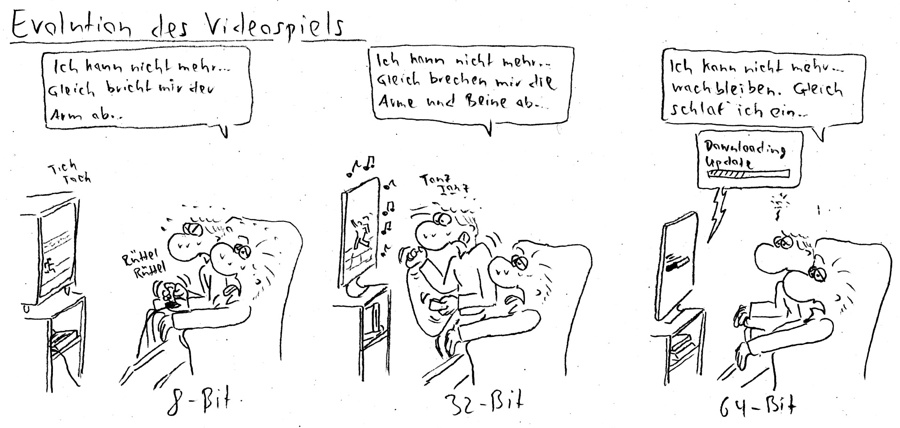 Evolution des Videospiels
Ich kann nicht mehr...
Gleich bricht mir der
Arm ab...
Tick
Tack
Rüttel
Rüttel
8-Bit
Ich kann nicht mehr...
Gleich brechen mir die
Arme und Beine ab...
Tanz
Tanz
32-Bit
Ich kann nicht mehr...
wachbleiben. Gleich
schlaf ich ein..
Downloading
Update
64-Bit